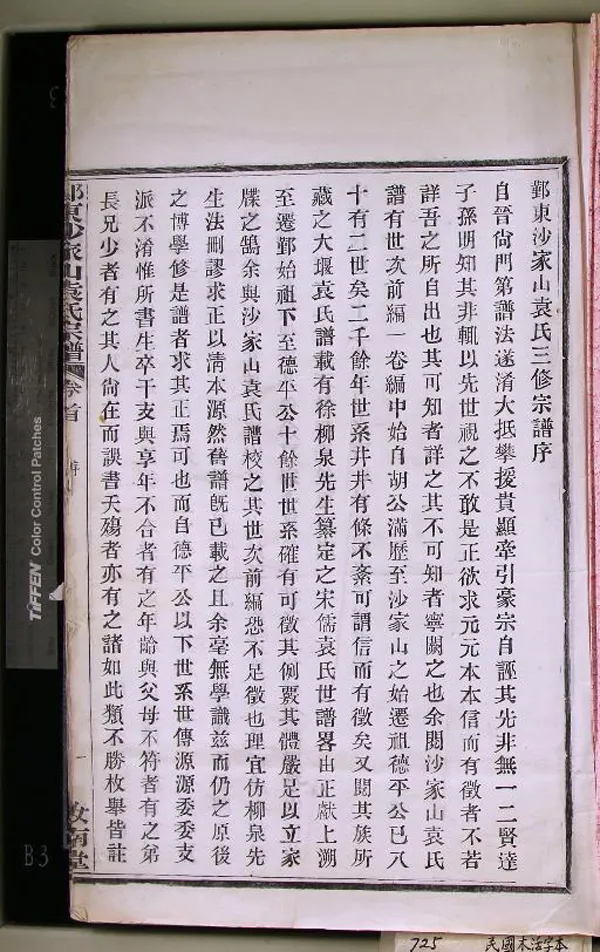 鄞東沙家山袁氏三修宗譜序
自晉尙門第譜法遂淆大抵攀援貴顯牽引豪宗自誣其先非無一二賢達
子孫明知其非輒以先世視之不敢是正欲求元元本本信而有徵者不若
詳吾之所自出也其可知者詳之其不可知者寧闕之也余閱沙家山袁氏
譜有世次前編一卷編中始自胡公滿歷至沙家山之始遷祖德平公已八
十有二世矣二千餘年世系井井有條不紊可謂信而有徵矣又閱其族所
藏之大堰袁氏譜載有徐柳泉先生纂定之宋儒袁氏世譜畧出正獻上溯
至遷鄞始祖下至德平公十餘世世系確有可徵其例覈其體嚴足以立家
牒之鵠余與沙家山袁氏譜校之其世次前編恐不足徵也理宜仿柳泉先
生法刪謬求正以淸本源然舊譜旣已載之且余毫無學識茲而仍之原後
之博學修是譜者求其正焉可也而自德平公以下世系世傳源源委委支
派不淆惟所書生卒干支與享年不合者有之年齡與父母不符者有之弟
長兄少者有之其人尙在而誤書夭殤者亦有之諸如此類不勝枚舉皆註
鄞東沙家山袁氏宗譜
卷首
序
一
汝南堂
TIFFEN Color Control Patches
B3
725
民國木活字本